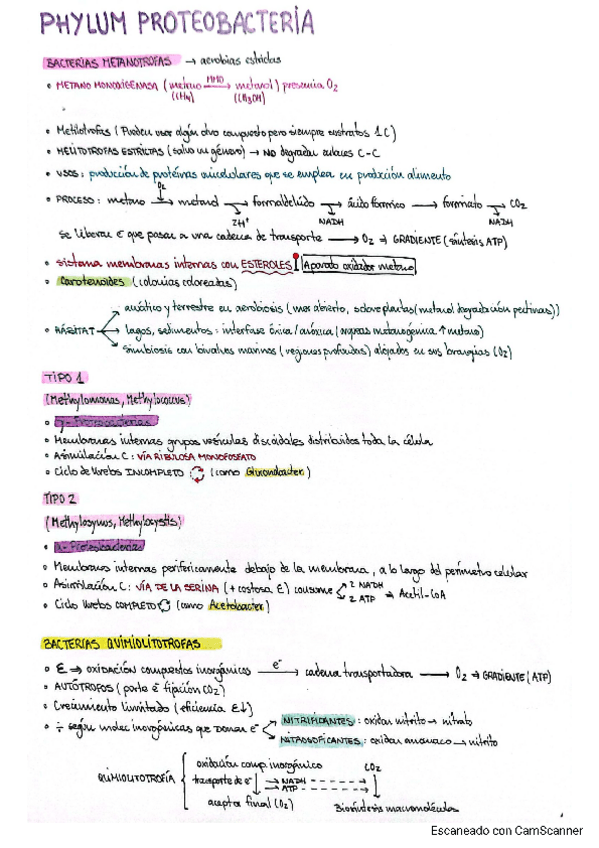 PHYLUM PROTEOBACTERIA
BACTERIAS METANOTROFAS → aerobias estrictas
• METANO MONOOXIGENASA (metano MMO→ metanol) presencia O2
(CH4) (CH3OH)
• Metilotrofas (Pueden usar algún otro compuesto pero siempre sustratos 1C)
• METILOTROFAS ESTRICTAS (salvo un género) → NO degradan enlaces C-C
• USOS: producción de proteínas unicelulares que se emplea en producción alimento
• PROCESO: metano → metanol → formaldehído → ácido fórmico → formiato → CO2
O2 2H+ NADH NADH
Se liberan e- que pasan a una cadena de transporte → O2 → GRADIENTE (síntesis ATP)
• sistema membranas internas con ESTEROLES Aparato oxidador metano
• Carotenoides (colonias coloreadas)
acuático y terrestre en aerobiosis (mar abierto, sobre plantas (metanol degradación pectinas))
• HÁBITAT lagos, sedimentos: interfase óxica/anóxica (arqueas metanogénicas ↑ metano)
simbiosis con bivalvos marinos (regiones profundas) alojados en sus branquias (O2)
TIPO 1
(Methylomonas, Methylococcus)
• γ-Proteobacterias
• Membranas internas grupos vesículas discoidales distribuidos toda la célula
• Asimilación C: VÍA RIBULOSA MONOFOSFATO
• Ciclo de Krebs INCOMPLETO (como Gluconobacter)
TIPO 2
(Methylosynus, Methylocystis)
• α-Proteobacterias
• Membranas internas periféricamente debajo de la membrana, a lo largo del perímetro celular
• Asimilación C: VÍA DE LA SERINA (+ costosa E) consume 2 NADH 2 ATP → Acetil-CoA
• Ciclo Krebs COMPLETO (como Acetobacter)
BACTERIAS QUIMIOLITOTROFAS
• E → oxidación compuestos inorgánicos e-→ cadena transportadora → O2 → GRADIENTE (ATP)
• AUTÓTROFOS (parte e- fijación CO2)
• Crecimiento limitado (eficiencia E↓)
• ÷ según molec inorgánicas que donan e- NITRIFICANTES: oxidan nitrito → nitrato
NITROSOFICANTES: oxidan amoniaco → nitrito
oxidación comp. inorgánico CO2
QUIMIOLITOTROFÍA transporte de e- → NADH → ATP
aceptor final (O2) Biosíntesis macromoléculas
Escaneado con CamScanner